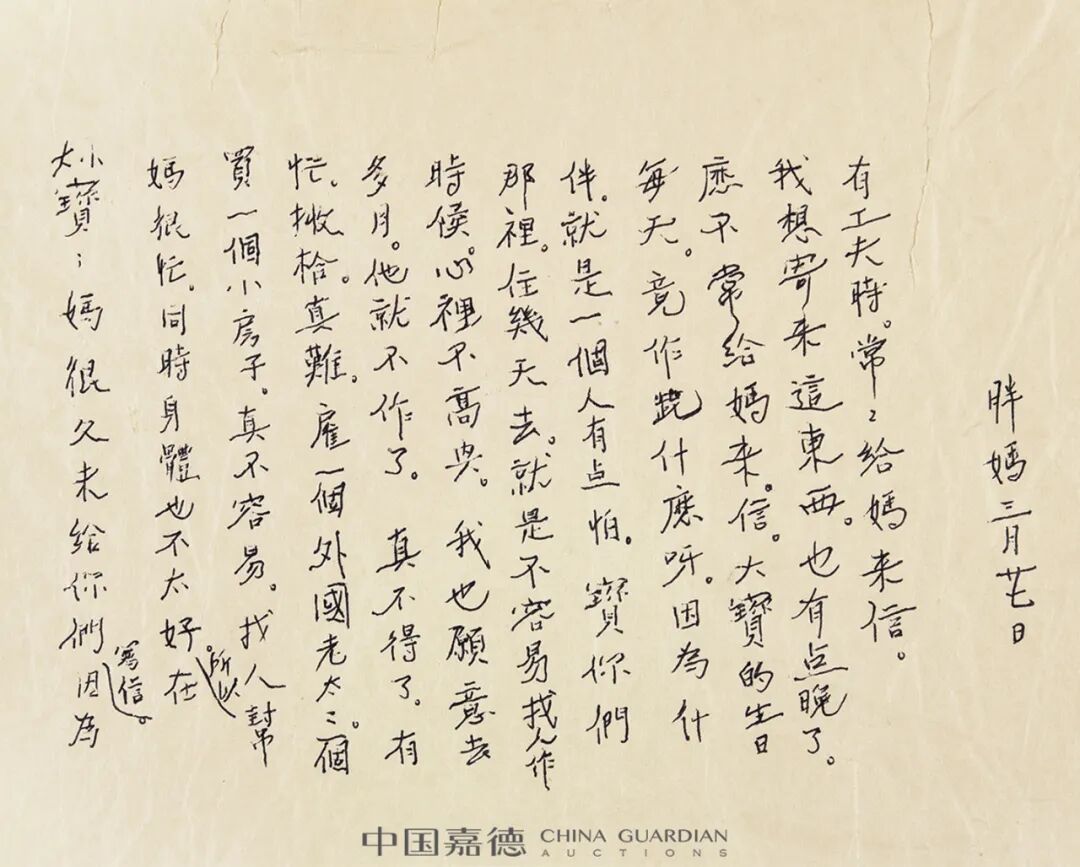 大小寶：媽很久未給你們寫信。因為
媽很忙。同時身體也不太好。所以在
買一個小房子。真不容易。找人幫
忙。拾。真難。雇一個外國老太〻。一個
多月。他就不作了。真不得了。有
時候。心裡不高兴。我也願意去
那裡。住幾天去。就是不容易找人作
伴。就是一個人有点怕。寶你們
每天。竟作些什麽呀。因為什
麽不常給媽来信。大寶的生日
我想寄来這東西。也有点晚了。
有工夫時。常〻給媽来信。
胖媽三月廿七日
中国嘉德 CHINA GUARDIAN AUCTIONS